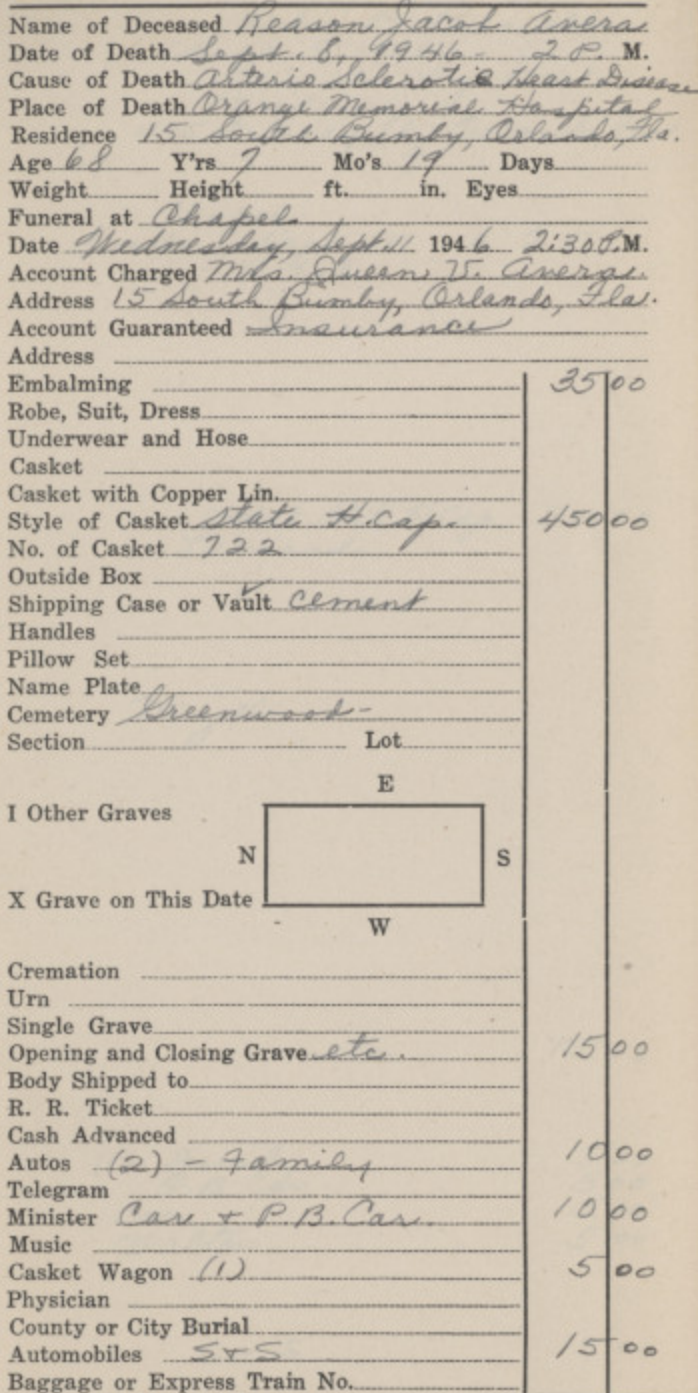 Name of Deceased Reason Jacob Avera
Date of Death Sept. 8, 1946 - 2 P. M.
Cause of Death Arterio Sclerotic Heart Disease
Place of Death Orange Memorial Hospital
Residence 15 South Bumby, Orlando, Fla.
Age 68 Y'rs 7 Mo's 19 Days
Weight Height ft. in. Eyes
Funeral at Chapel
Date Wednesday, Sept. 11 1946 2:30 P.M.
Account Charged Mrs. Queen V. Avera
Address 15 South Bumby, Orlando, Fla.
Account Guaranteed Insurance
Address
Embalming 35 00
Robe, Suit, Dress
Underwear and Hose
Casket
Casket with Copper Lin.
Style of Casket State H. Cap. 450 00
No. of Casket 722
Outside Box
Shipping Case or Vault ✓ Cement
Handles
Pillow Set
Name Plate
Cemetery Greenwood -
Section Lot
E
I Other Graves
N S
X Grave on This Date
W
Cremation
Urn
Single Grave
Opening and Closing Grave etc. 15 00
Body Shipped to
R. R. Ticket
Cash Advanced
Autos (2) - Family 10 00
Telegram
Minister Car + P.B. Car. 10 00
Music
Casket Wagon (1) 5 00
Physician
County or City Burial
Automobiles S + S 15 00
Baggage or Express Train No.